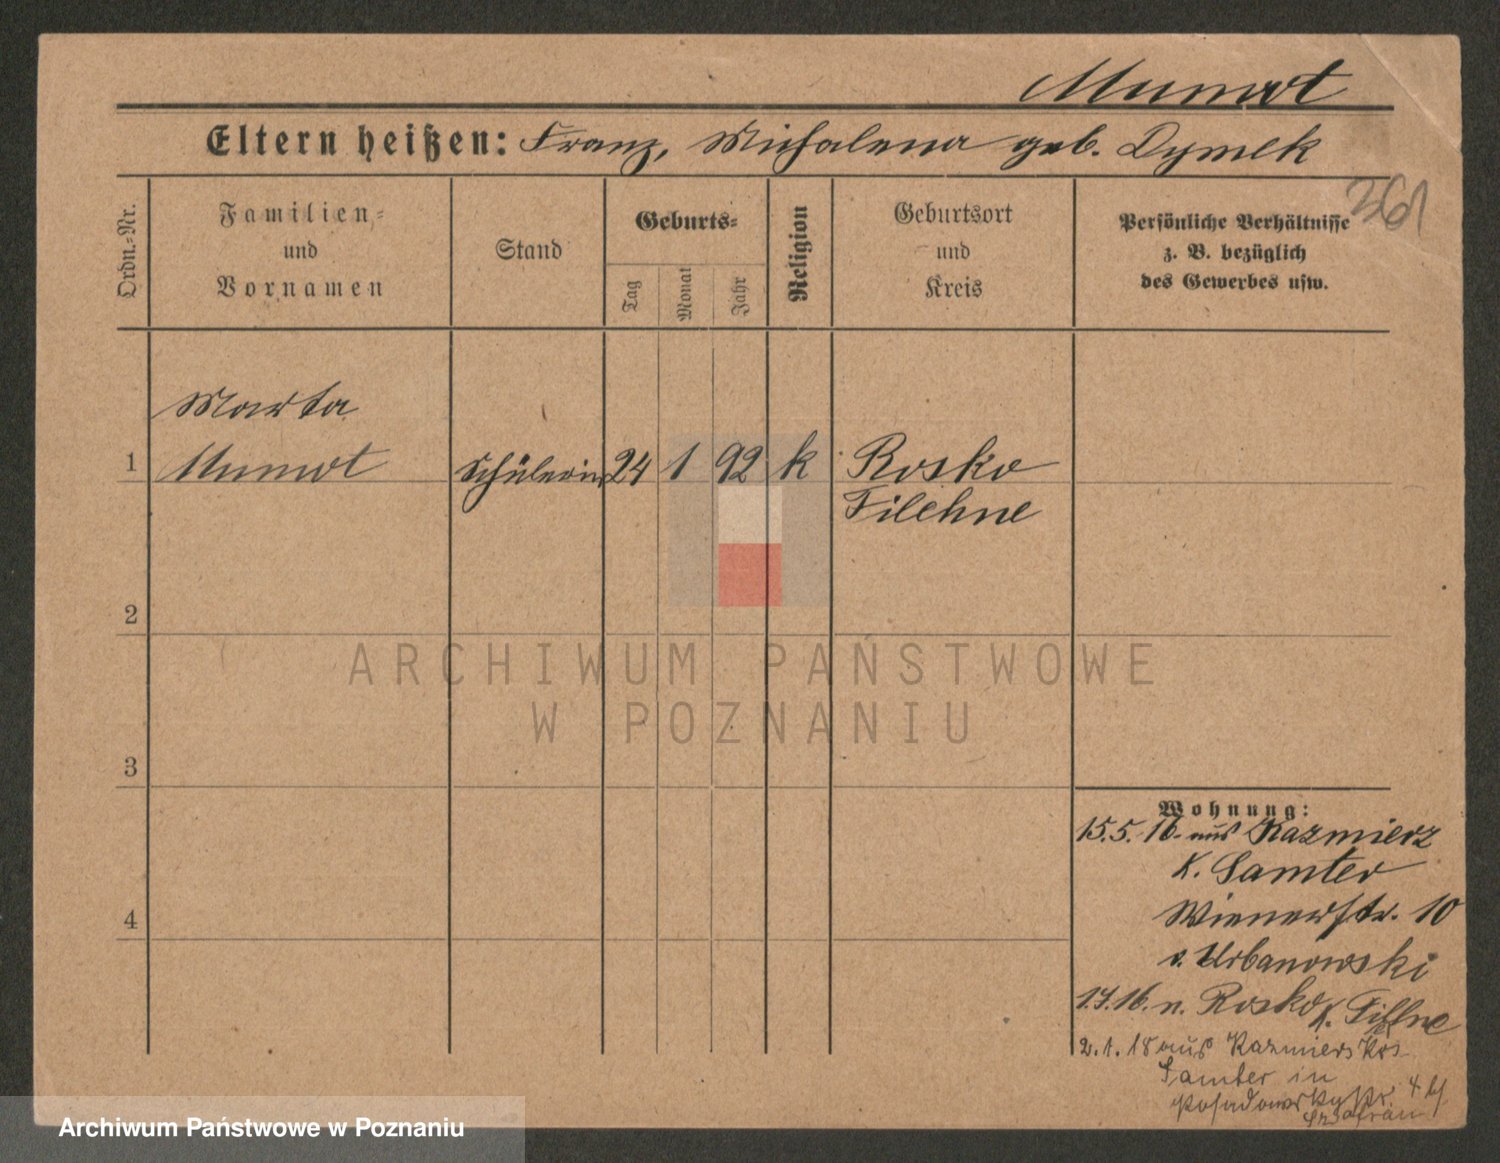 Mumot
Eltern heißen: Franz, Michalena geb. Dymek
261
Ordn.-Nr.
Familien-
und
Vornamen
Stand
Geburts-
Tag
Monat
Jahr
Religion
Geburtsort
und
Kreis
Persönliche Verhältnisse
z. B. bezüglich
des Gewerbes usw.
Marta
1 Mumot Schülerin 24 1 92 k Rosko
Filehne
2
3
4
Wohnung:
15.5.16. aus Kazmierz
K. Samter
Wienerstr. 10
v. Urbanowski
1.7.16. n. Rosko K. Filehne
2.1.18 aus Kazmierz Krs
Samter in
Posadowskystr. 4
Szafran
ARCHIWUM PAŃSTWOWE
W POZNANIU
Archiwum Państwowe w Poznaniu